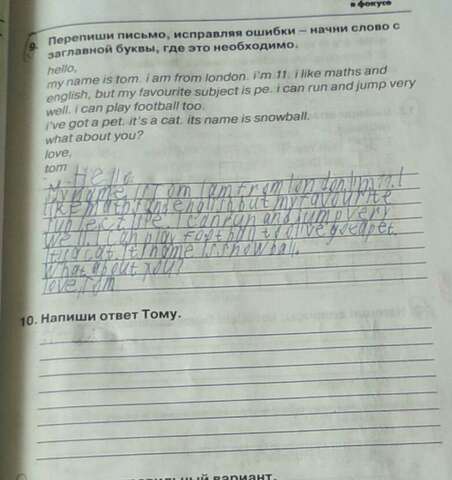 в фокусе
9. Перепиши письмо, исправляя ошибки – начни слово с
заглавной буквы, где это необходимо.
hello,
my name is tom. i am from london. i'm 11. i like maths and
english, but my favourite subject is pe. i can run and jump very
well. i can play football too.
i've got a pet. it's a cat. its name is snowball.
what about you?
love,
tom
Hello,
My name is Tom I am from london I'm 11. I
like maths and english but my favourite
subject is pe. I can run and jump very
well. I can play football too I've got a pet.
it's a cat. It name is snowball.
What about you?
love, Tom
10. Напиши ответ Тому.
вариант.